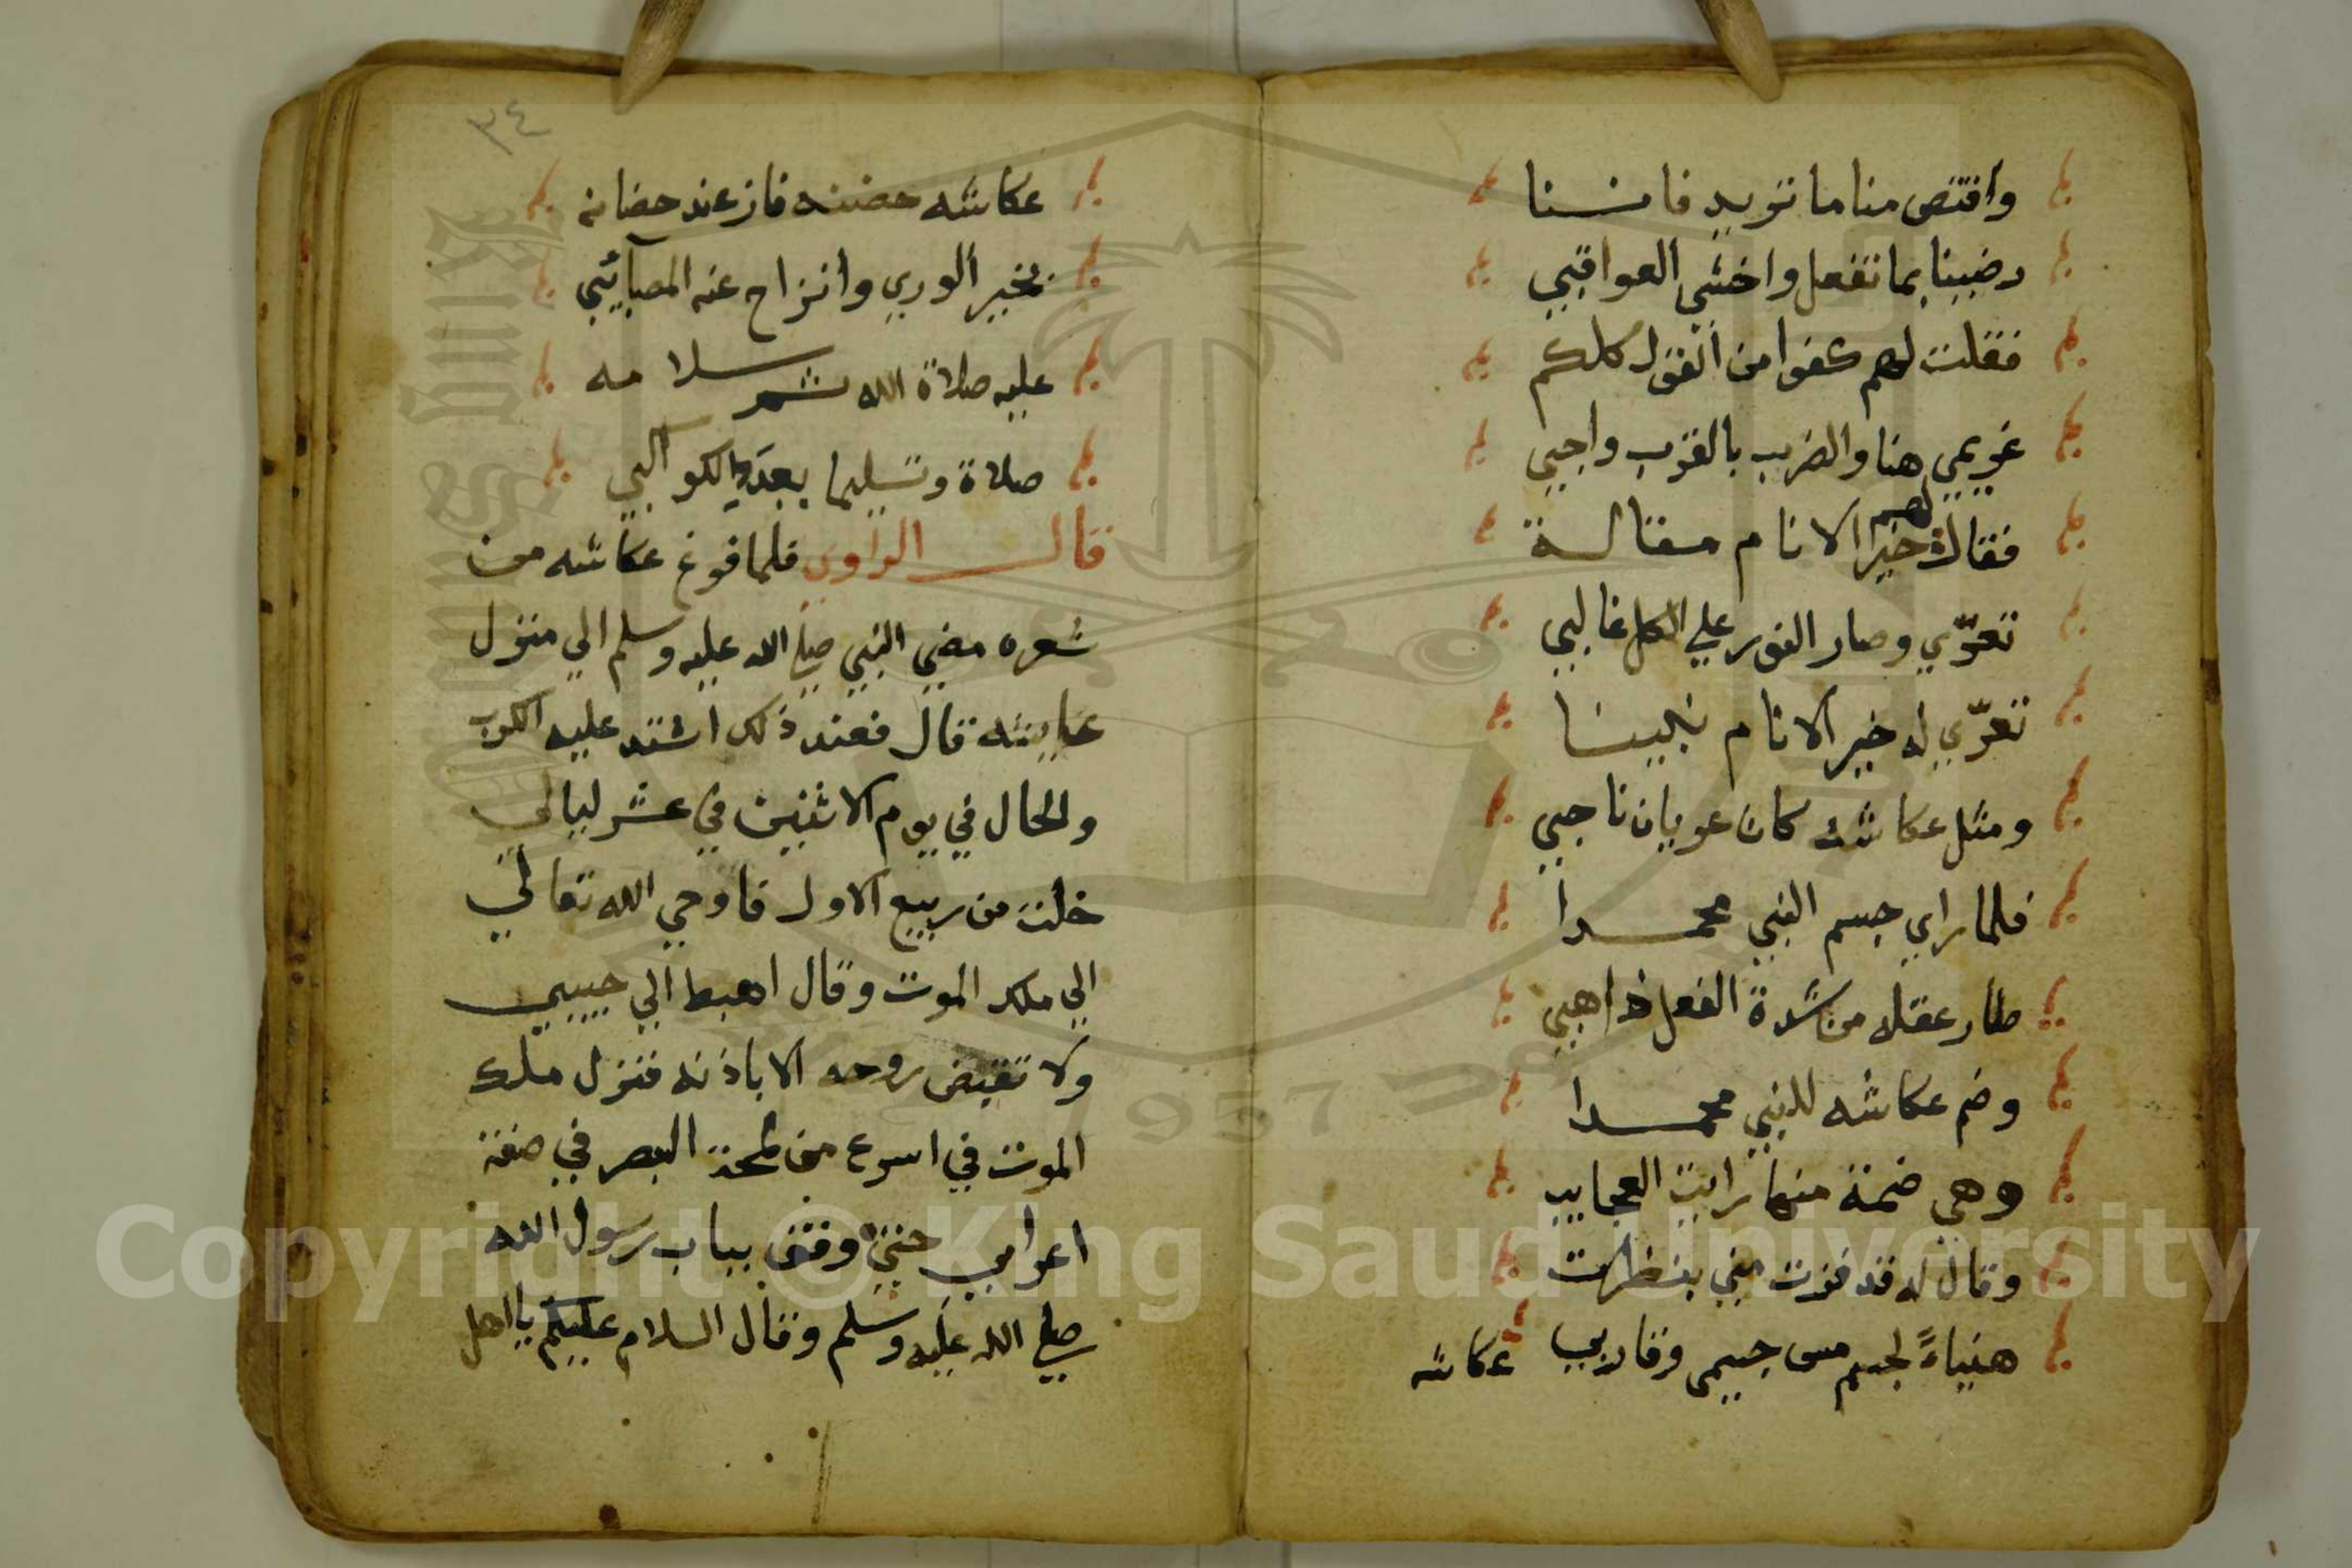 واقتص منا ما تريد فاننا
رضينا بما تفعل واخشي العواقبي
فقلت لهم كفوا من القول كلكم
غريمي هنا والضرب بالقرب واجبي
فقال لهم خير الانام مقالة
تعرّي وصار النور علي الكل غالبي
تعرّي له خير الانام نبينا
ومثل عكاشه كان عريان ناجبي
فلما راي جسم النبي محمدا
طار عقله من شدة الفعل ذاهبي
وضم عكاشه للنبي محمدا
وهي ضمة منها رايت العجايب
وقال له قد فزت مني بنظرت
هنياءً لجسم مس جسمي وقاربي
عكاشه
٣٤
عكاشه حضنه فاز عند حضانه
بخير الوري وانزاح عنه المصآئبي
عليه صلاة الله ثم سلامه
صلاة وتسليما بعد الكواكبي
قال الراوي فلما فرغ عكاشه من
شعره مضي النبي صلي الله عليه وسلم الي منزل
عايشه قال فعند ذلك اشتد عليه الكرب
والحال في يوم الاثنين في عشر ليالي
خلت من ربيع الاول فاوحي الله تعالي
الي ملك الموت وقال اهبط الي حبيبي
ولا تقبض روحه الا باذنه فنزل ملك
الموت في اسرع من لمحة البصر في صفة
اعرابي حتي وقف بباب رسول الله
صلي الله عليه وسلم وقال السلام عليكم يا اهل
Copyright © King Saud University
1957